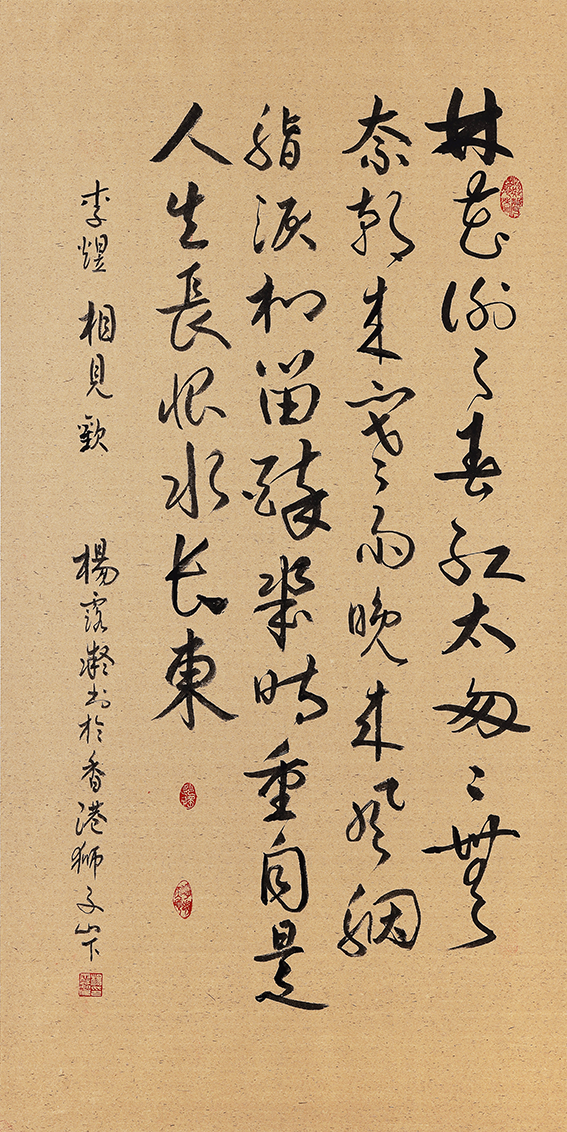 林花謝了春紅太匆〻無
奈朝来寒雨晚来風胭
脂淚相留醉幾時重自是
人生長恨水长東
李煜 相見歡 楊露凝书於香港獅子山下